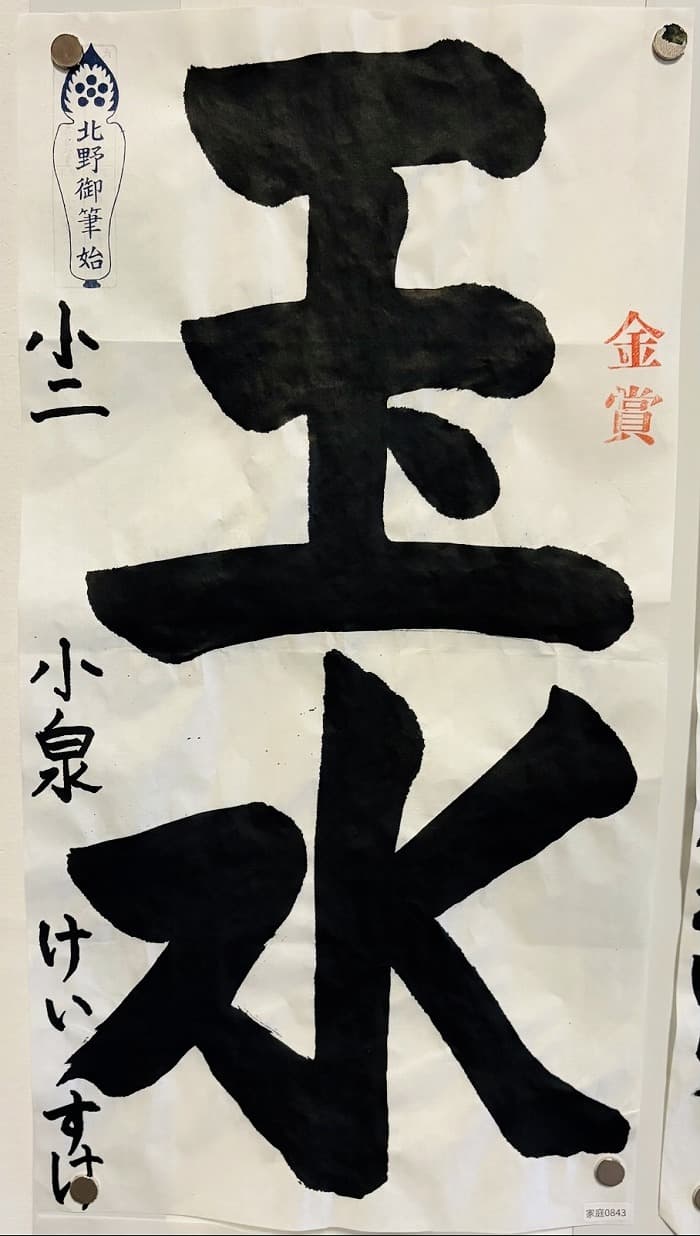 金賞
玉水
北野御筆始
小二
小泉
けいすけ
家庭0843